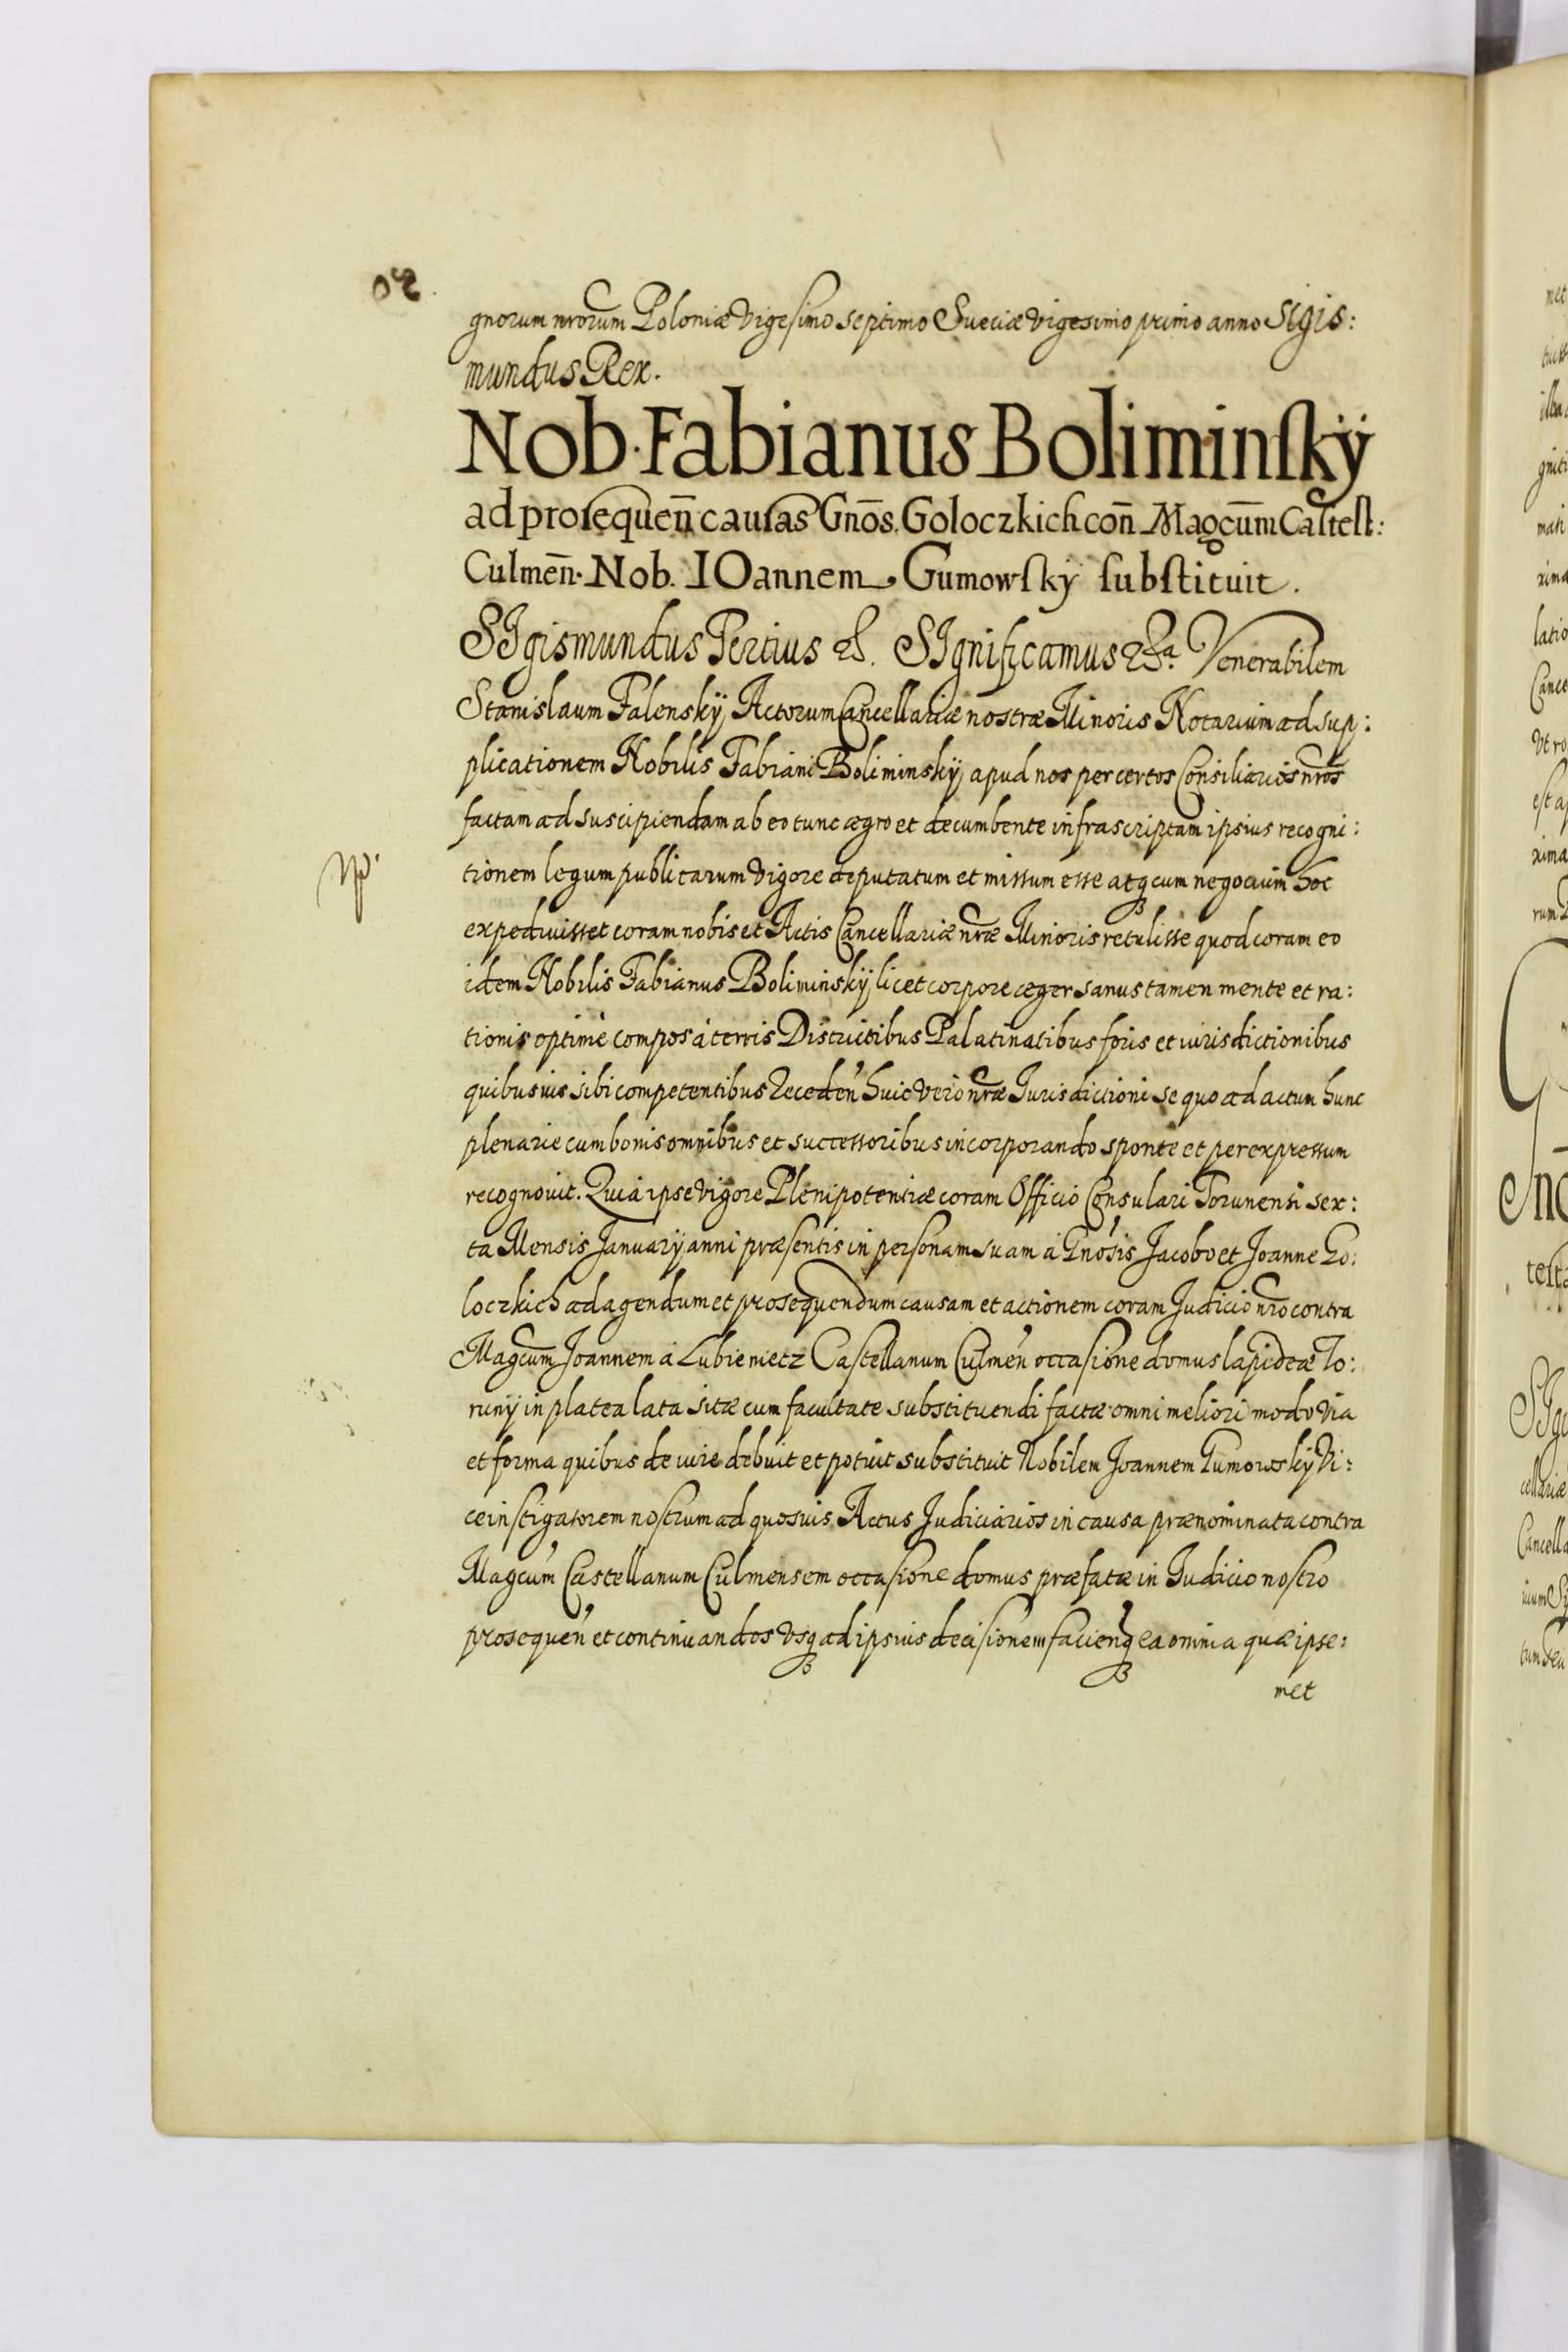 gnorum nrorum Poloniæ Vigesimo septimo Sueciæ Vigesimo primo anno Sigis:
mundus Rex.
Nob. Fabianus Boliminskÿ
ad prosequen̄ causas Gnōs. Goloczkich con̄ Magcūm Castell:
Culmen̄. Nob. IOannem Gumowskÿ substituit.
SIgismundus Tertius &. SIgnificamus &a. Venerabilem
Stanislaum Falenskÿ Actorum Cancellariæ nostræ Minoris Notarium ad sup:
plicationem Nobilis Fabiani Boliminskÿ apud nos per certos Consiliarios nros
factam ad suscipiendam ab eo tunc ægro et decumbente infrascriptam ipsius recogni:
tionem legum publicarum Vigore deputatum et missum esse atq; cum negocium hoc
expedivisset coram nobis et Actis Cancellariæ nræ Minoris retulisse quod coram eo
idem Nobilis Fabianus Boliminskÿ licet corpore æger sanus tamen mente et ra:
tionis optimè compos à terris Districtibus Palatinatibus foris et iurisdictionibus
quibusvis sibi competentibus Receden̄ huic Vero nræ Jurisdictioni se quo ad actum hunc
plenarie cum bonis omnibus et successoribus incorporando sponte et per expressum
recognovit. Quia ipse Vigore Plenipotentiæ coram Officio Consulari Torunensi sex:
ta Mensis Januarÿ anni præsentis in personam suam à Gnosis Jacobo et Joanne Go:
loczkich ad agendum et prosequendum causam et actionem coram Judicio nro contra
Magcum Joannem à Lubienietz Castellanum Culmen̄ occasione domus lapideæ To:
runÿ in platea lata sitæ cum facultate substituendi factæ omni meliori modo Via
et forma quibus de iure debuit et potuit substituit Nobilem Joannem Gumowskÿ Vi:
ceinstigatorem nostrum ad quosvis Actus Judiciarios in causa prænominata contra
Magcum Castellanum Culmensem occasione domus præfatæ in Judicio nostro
prosequen̄ et continuandos Vsq; ad ipsius decisionem facienq; ea omnia quæ ipse:
met